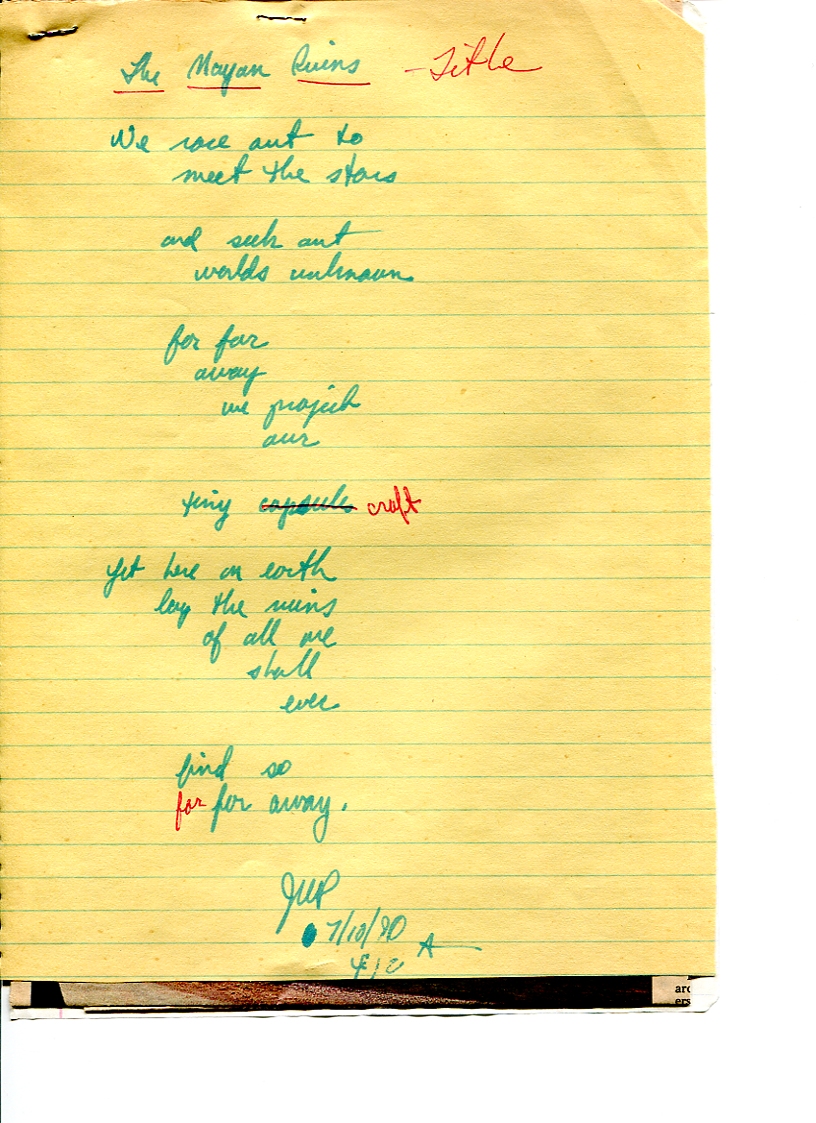 The Mayan Ruins - Title
We race out to
meet the stars
and seek out
worlds unknown
for far
away
we project
our
tiny capsule craft
yet here on earth
lay the ruins
of all we
shall
ever
find so
far far away.
7/10/90
A
arc
ers